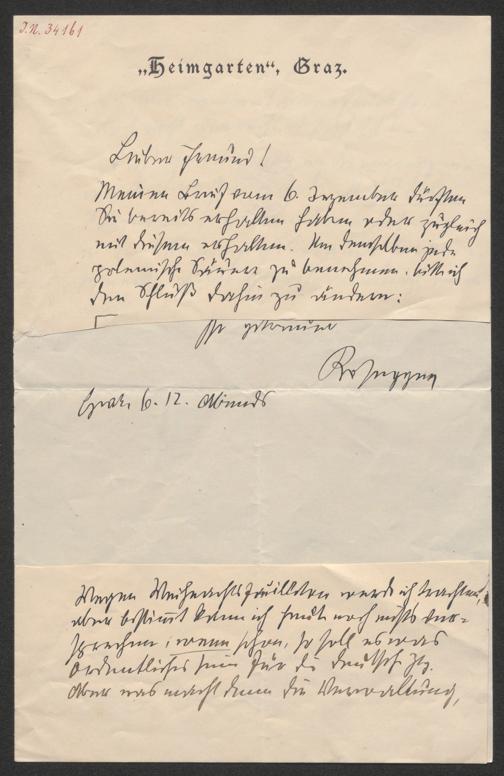 J.N. 34161
„Heimgarten“, Graz.
Lieber Freund!
Meinen Brief vom 6. Dezember dürften
Sie bereits erhalten haben oder zugleich
mit diesem erhalten. Um demselben jede
polemische Säure zu benehmen, bitte ich
den Schluß dahin zu ändern:
Ihr getreuer
Rosegger
Graz, 6. 12. Abends
Wegen Weihnachtsfeuilleton werde ich trachten,
aber bestimmt kann ich heute noch nichts ver-
sprechen; wenn schon, so soll es was
Ordentliches sein für die Deutsche Ztg.
Aber was macht denn die Verwaltung,